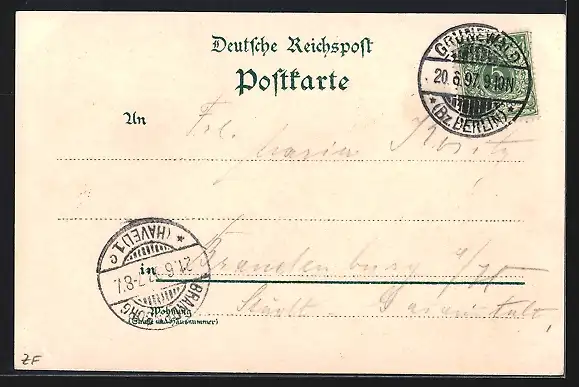 Deutsche Reichspost
Postkarte
GRUNEWALD
20.6.97. 9-10N.
* (Bz. BERLIN) *
An Frl.
Maria
* (HAVEL) 1 c
21.6.97. 7-8V.
BRANDENBURG
in Brandenburg a/H
Wohnung
(Straße und Hausnummer)
Städt.
ZF